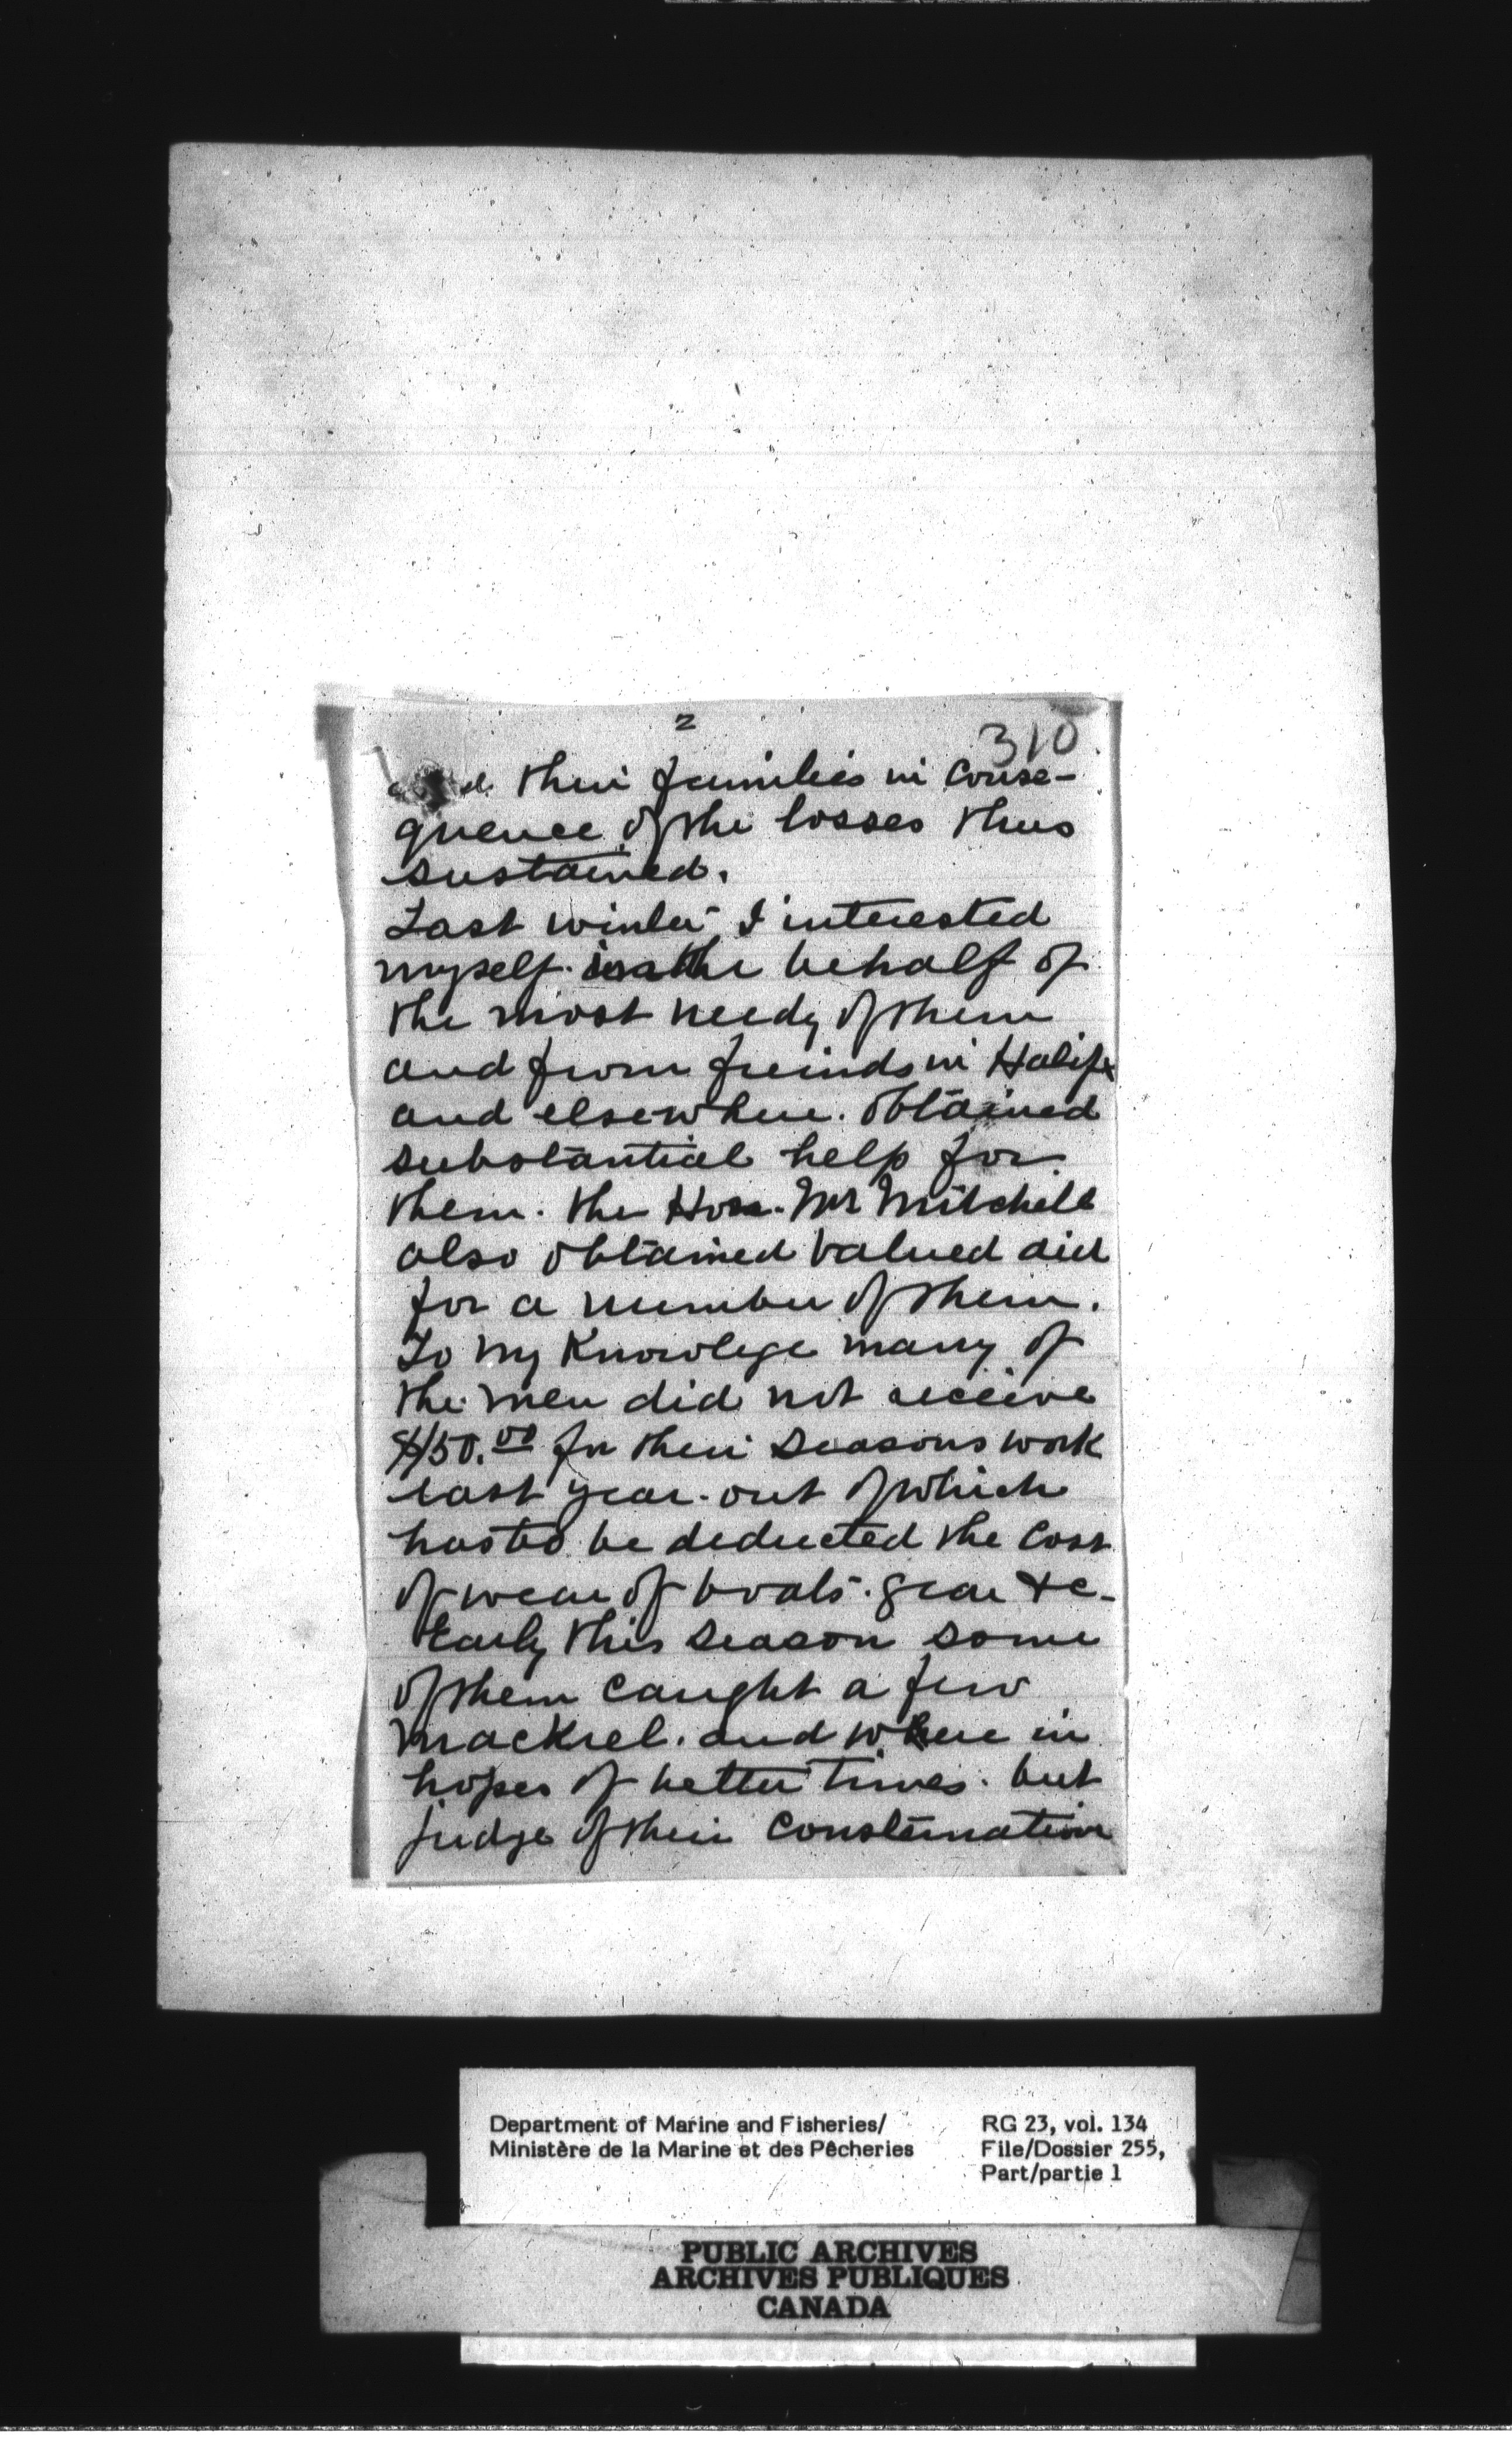 2
310
and their families in conse-
quence of the losses thus
sustained.
Last winter I interested
myself in the behalf of
the most needy of them
and from freinds in Halifx
and elsewhere. obtained
substantial help for
them. the Hon. Mr Mitchell
also obtained valued aid
for a number of them.
To my Knowlege many of
the men did not receive
$50.00 for their seasons work
last year. out of which
has to be deducted the cost
of wear of boats. gear &c-
Early this season some
of them caught a few
mackrel. and where in
hopes of better times. but
judge of their consternation
Department of Marine and Fisheries/
Ministère de la Marine et des Pêcheries
RG 23, vol. 134
File/Dossier 255,
Part/partie 1
PUBLIC ARCHIVES
ARCHIVES PUBLIQUES
CANADA